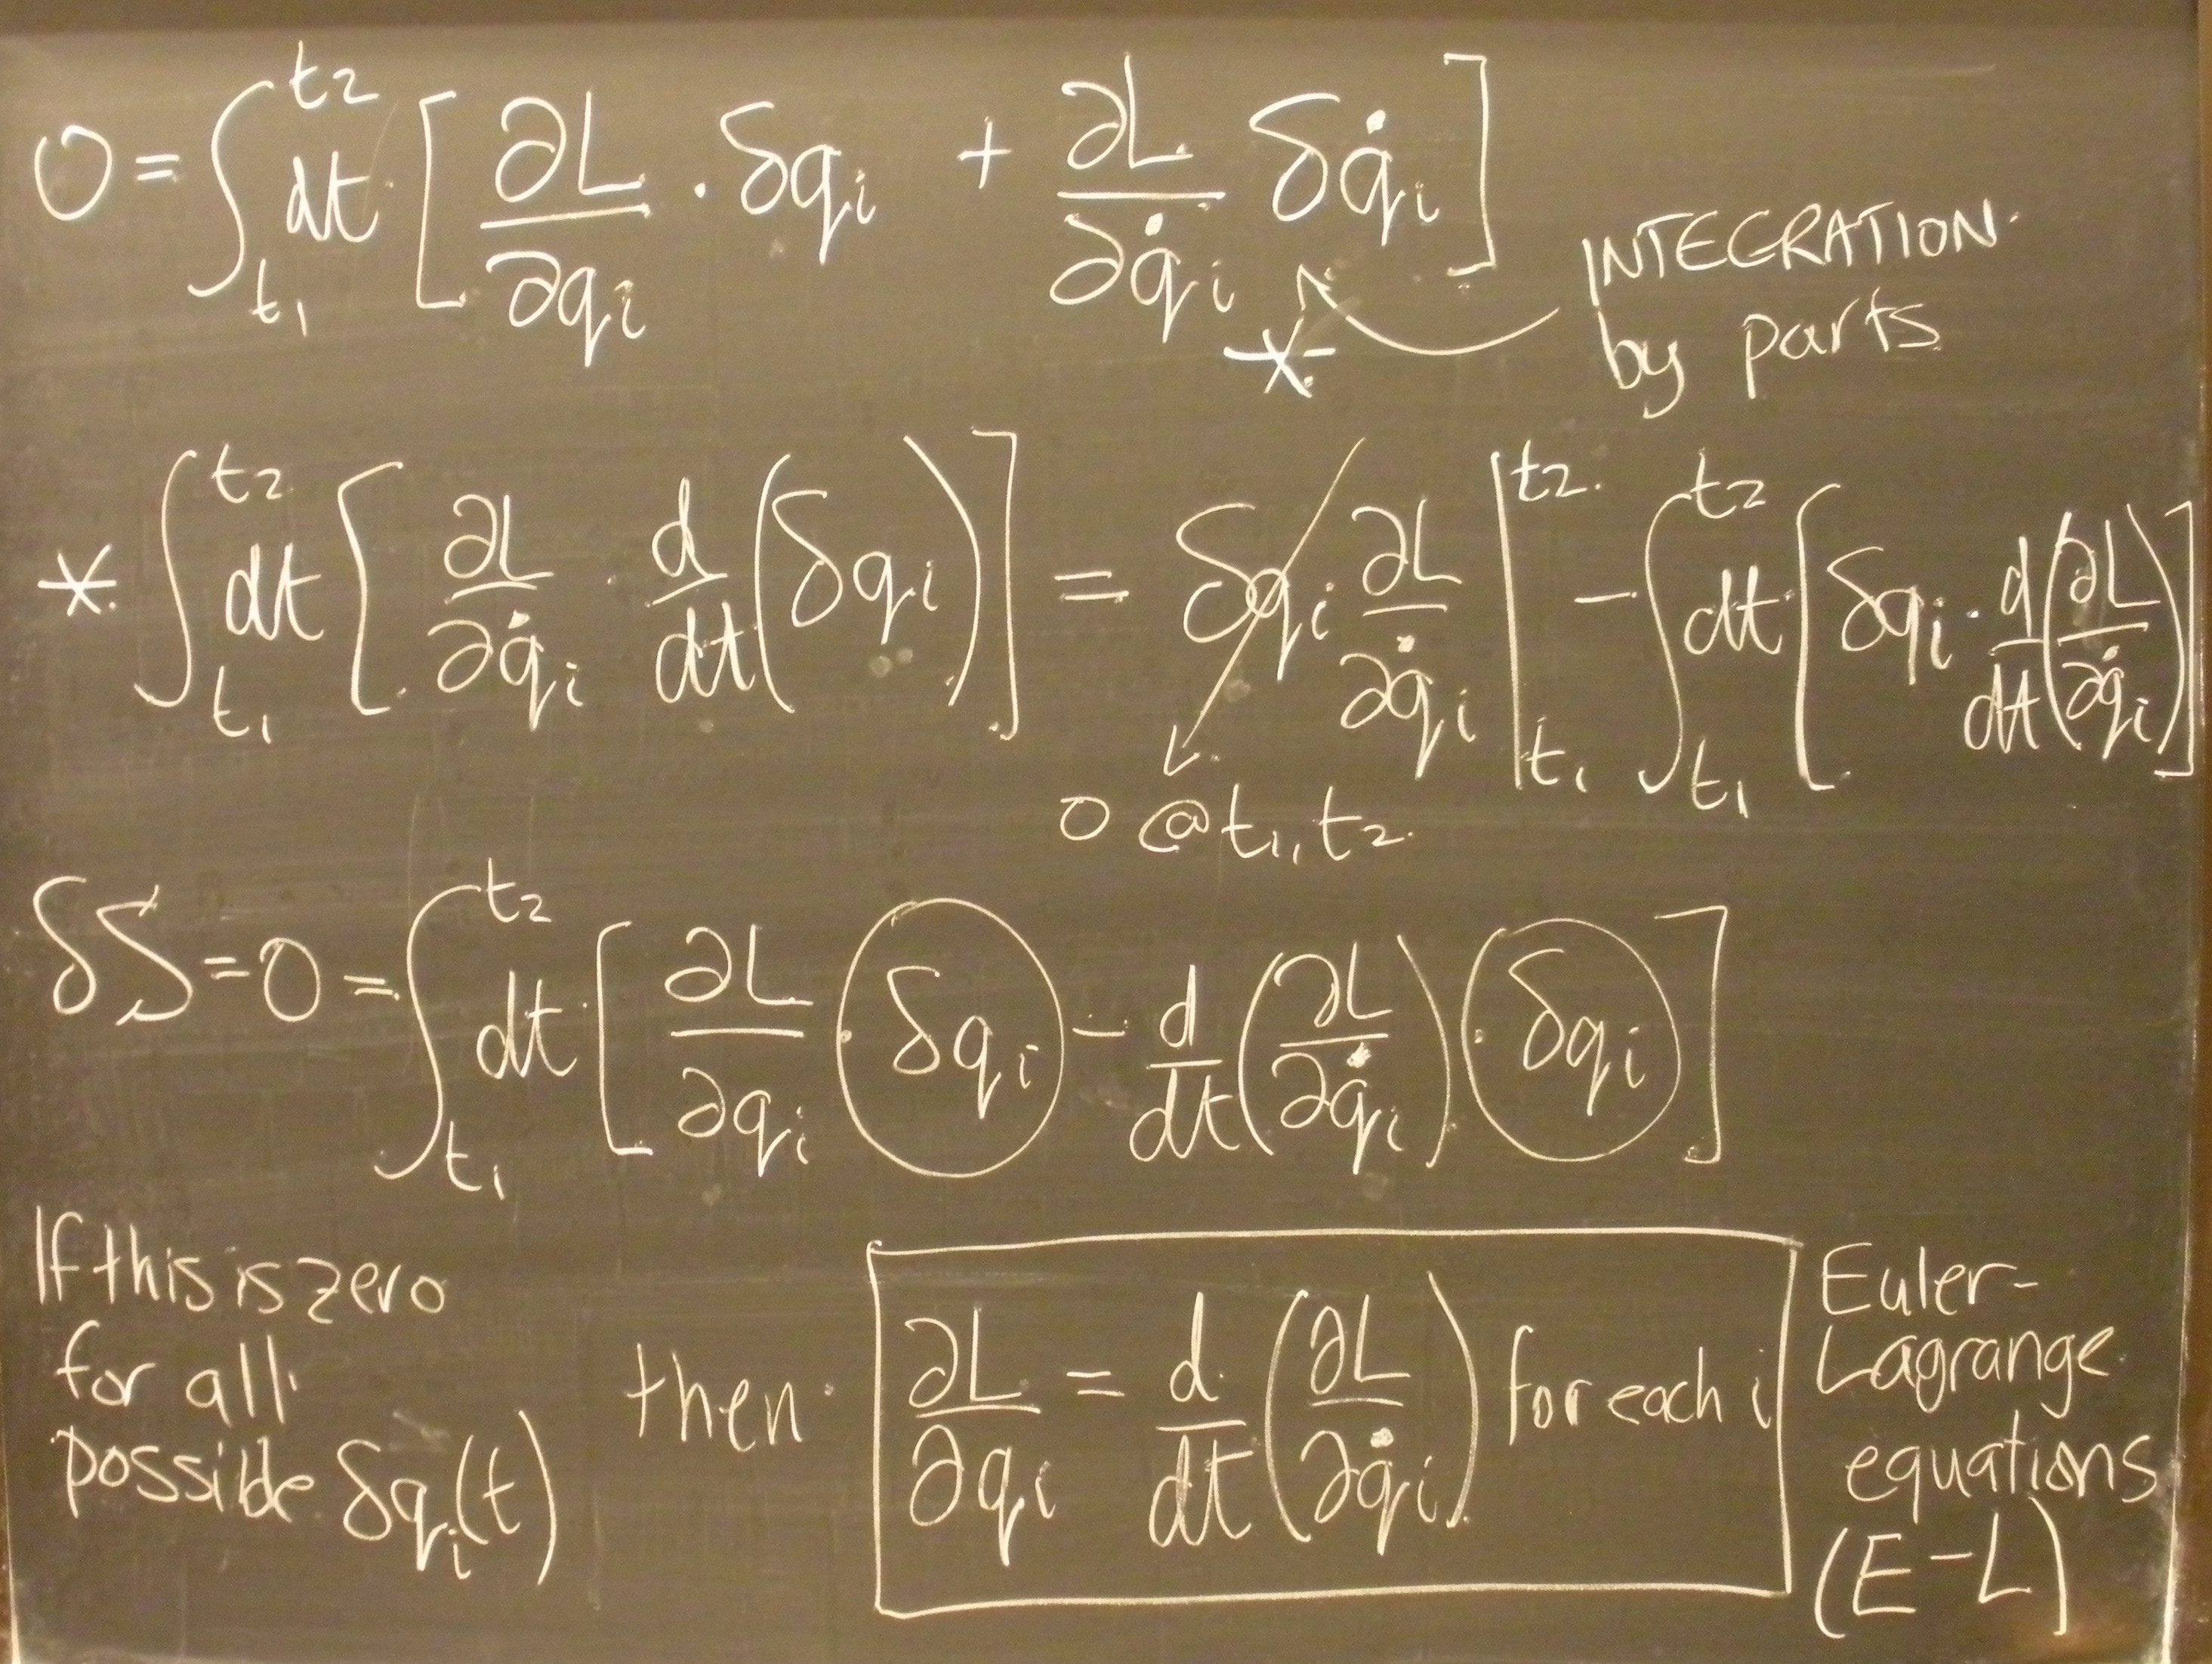 0 = ∫_{t₁}^{t₂} dt [ ∂L/∂qᵢ · δqᵢ + ∂L/∂q̇ᵢ δq̇ᵢ ]
*
INTEGRATION
by parts
* ∫_{t₁}^{t₂} dt [ ∂L/∂q̇ᵢ · d/dt (δqᵢ) ] = δqᵢ ∂L/∂q̇ᵢ |_{t₁}^{t₂} − ∫_{t₁}^{t₂} dt [ δqᵢ · d/dt (∂L/∂q̇ᵢ) ]
0 @ t₁, t₂
δS = 0 = ∫_{t₁}^{t₂} dt [ ∂L/∂qᵢ · δqᵢ − d/dt (∂L/∂q̇ᵢ) · δqᵢ ]
If this is zero
for all
possible δqᵢ(t)
then
∂L/∂qᵢ = d/dt (∂L/∂q̇ᵢ) for each i
Euler-
Lagrange
equations
(E-L)